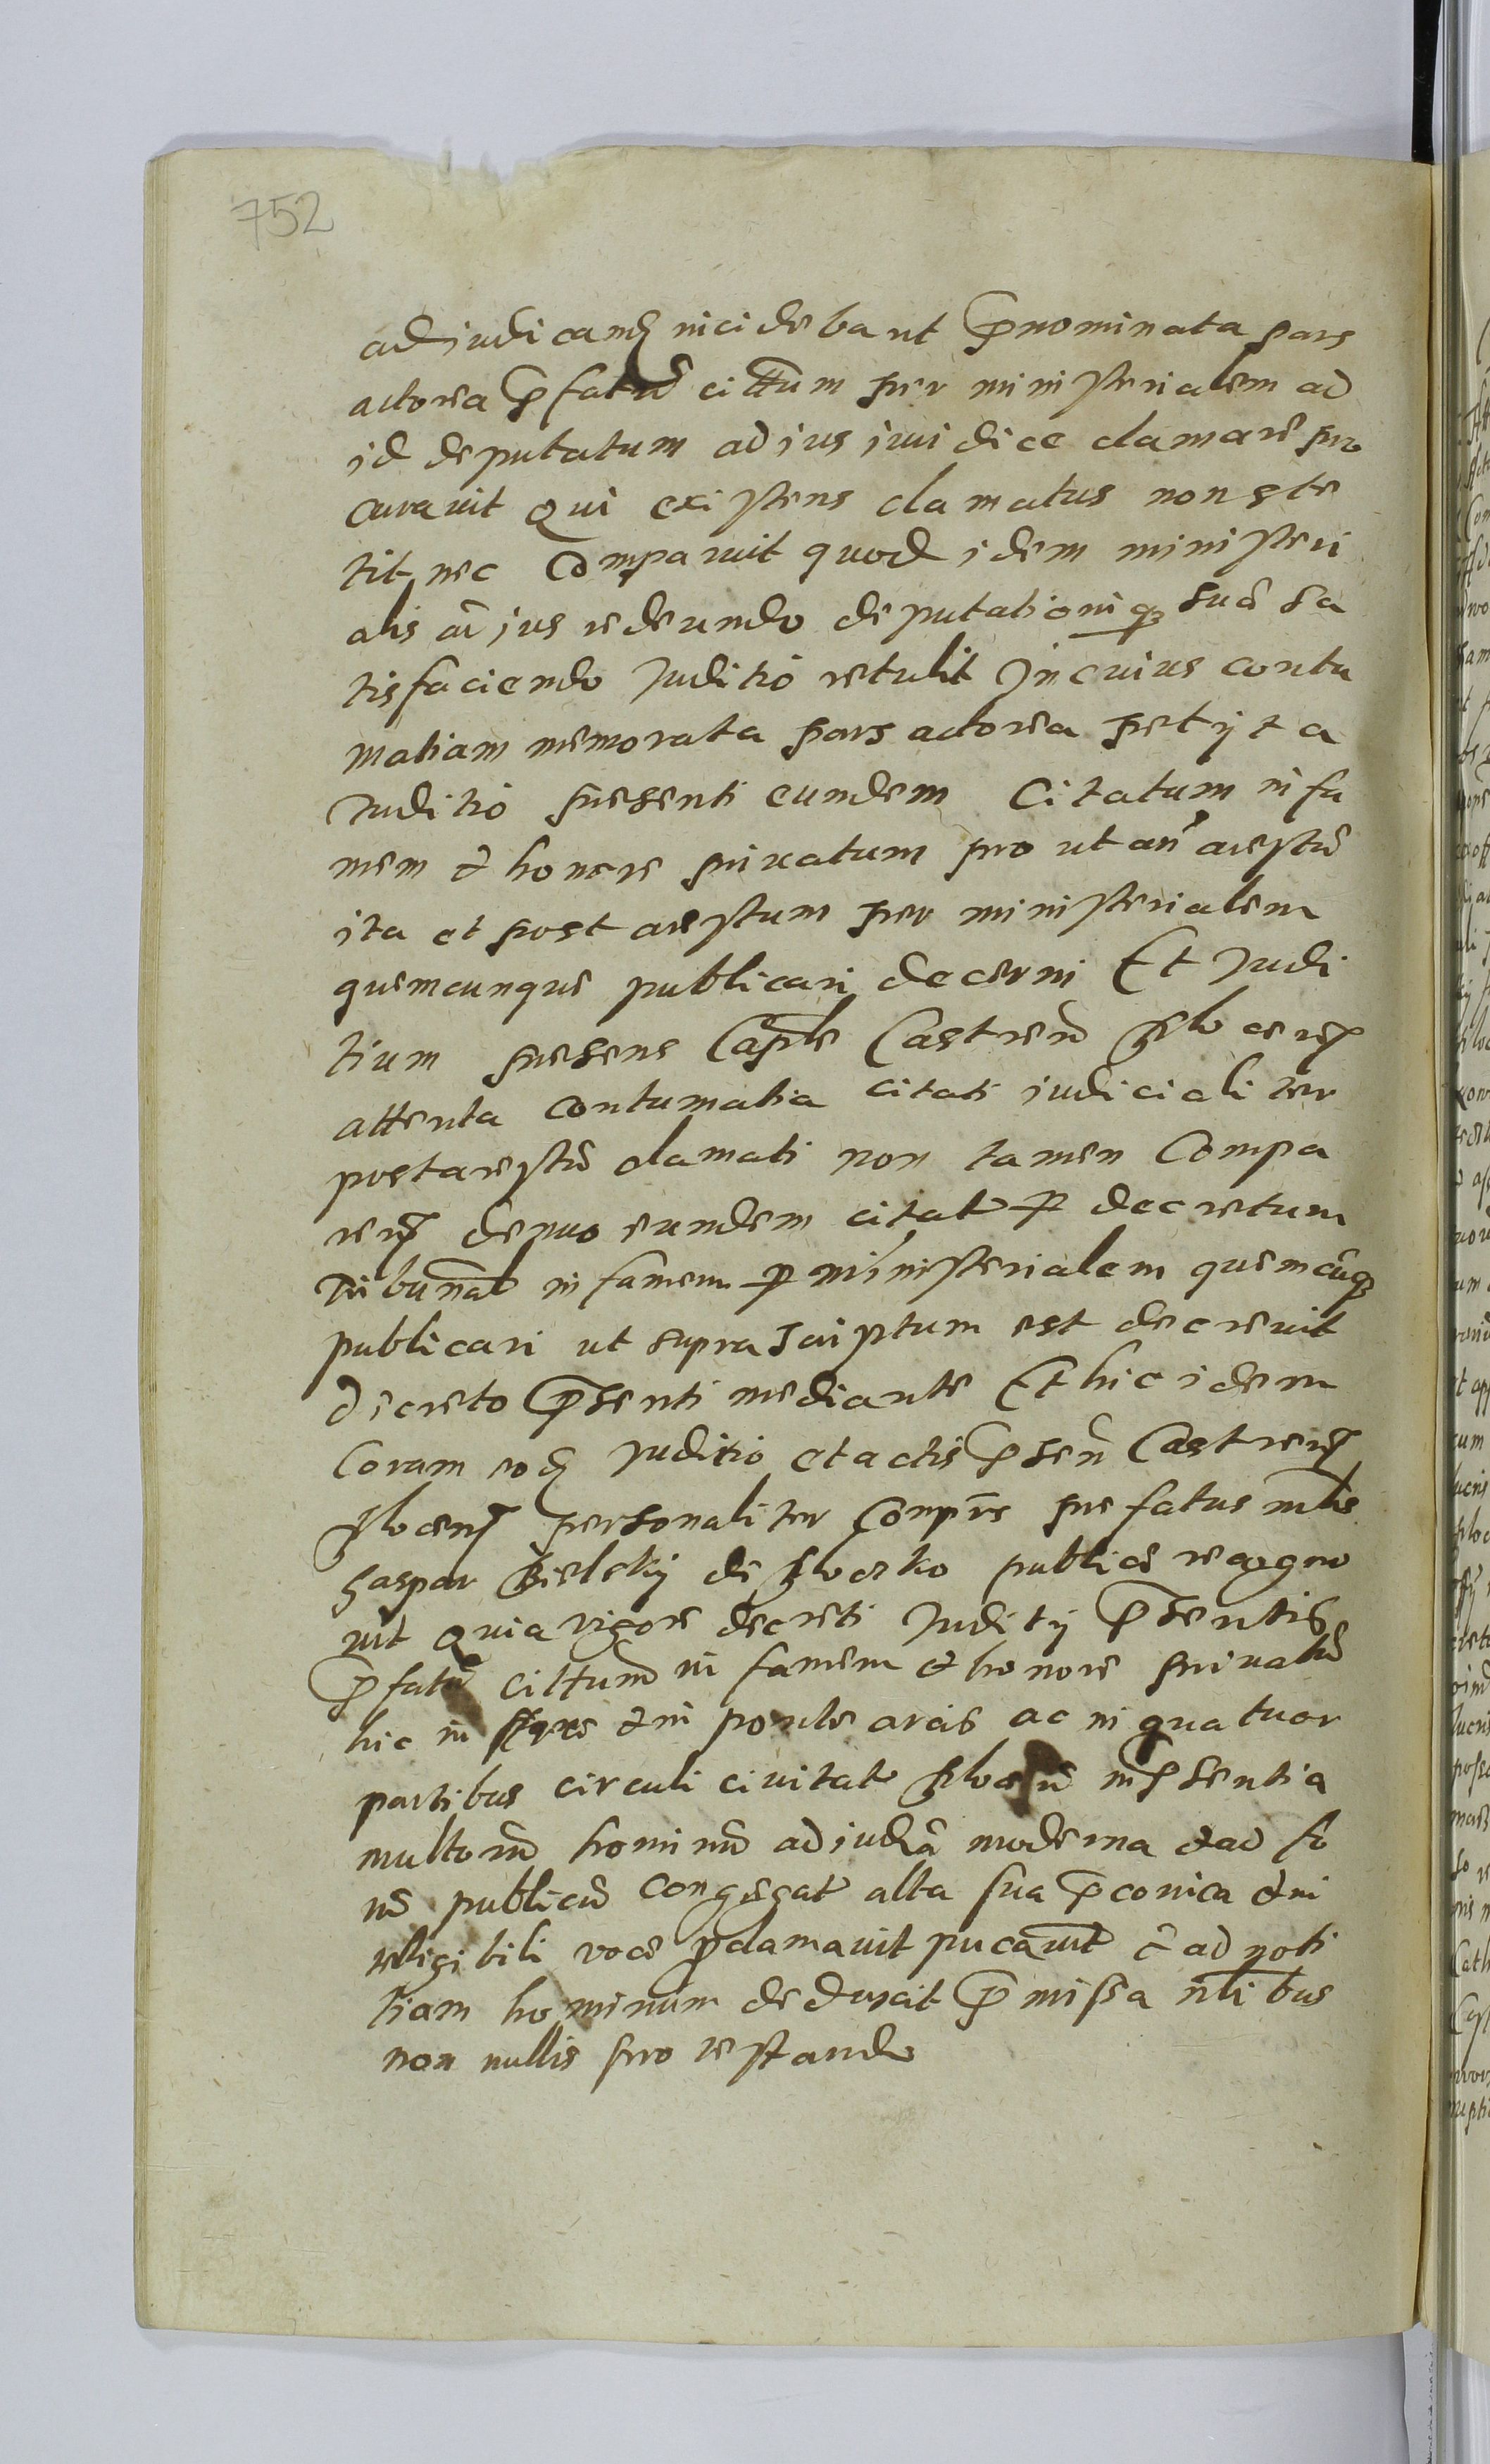 752
adiudicand incidebant pnominata pars
actorea pfatũ cittum per ministerialem ad
id deputatum ad ius iuridice clamare pro
curavit Qui existens clamatus non ste
tit nec Comparuit quod idem ministeri
alis a iure redeundo deputationiq suae sa
tisfaciendo Juditio retulit In cuius contu
matiam memorata pars actorea petijt a
Juditio presenti eundem Citatum infa
mem et honore privatum pro ut an arestũ
ita et post arestum per ministerialem
quemcunque publicari decerni Et Judi
tium presens Caple Castren Ploceñ
attenta contumatia citati iudicialiter
post arestũ clamati non tamen Compa
reñ denuo eundem citat p decretum
Tribunal infamem p ministerialem quemcũq
publicari ut supra scriptum est decrevit
decreto psenti mediante Et hic idem
Coram eod Juditio et actis pseñ Castreñ
Ploceñ personaliter Compñs prefatus mlis
Gaspar Bielsky de Ploczko publice recogno
vit Quia vigore decreti Juditij psentis
pfatũ cittum infamem et honore privatũ
hic in et in ponte arcis ac in quatuor
partibus circuli civitat Ploceñ in psentia
multorũ hominũ ad iudia moderna et ad fo
rũ publicũ congregat alta sua pconica et in
teligibili voce pclamavit pucavit et ad noti
tiam hominum deduxit pmissa nlibus
non nullis pro testando